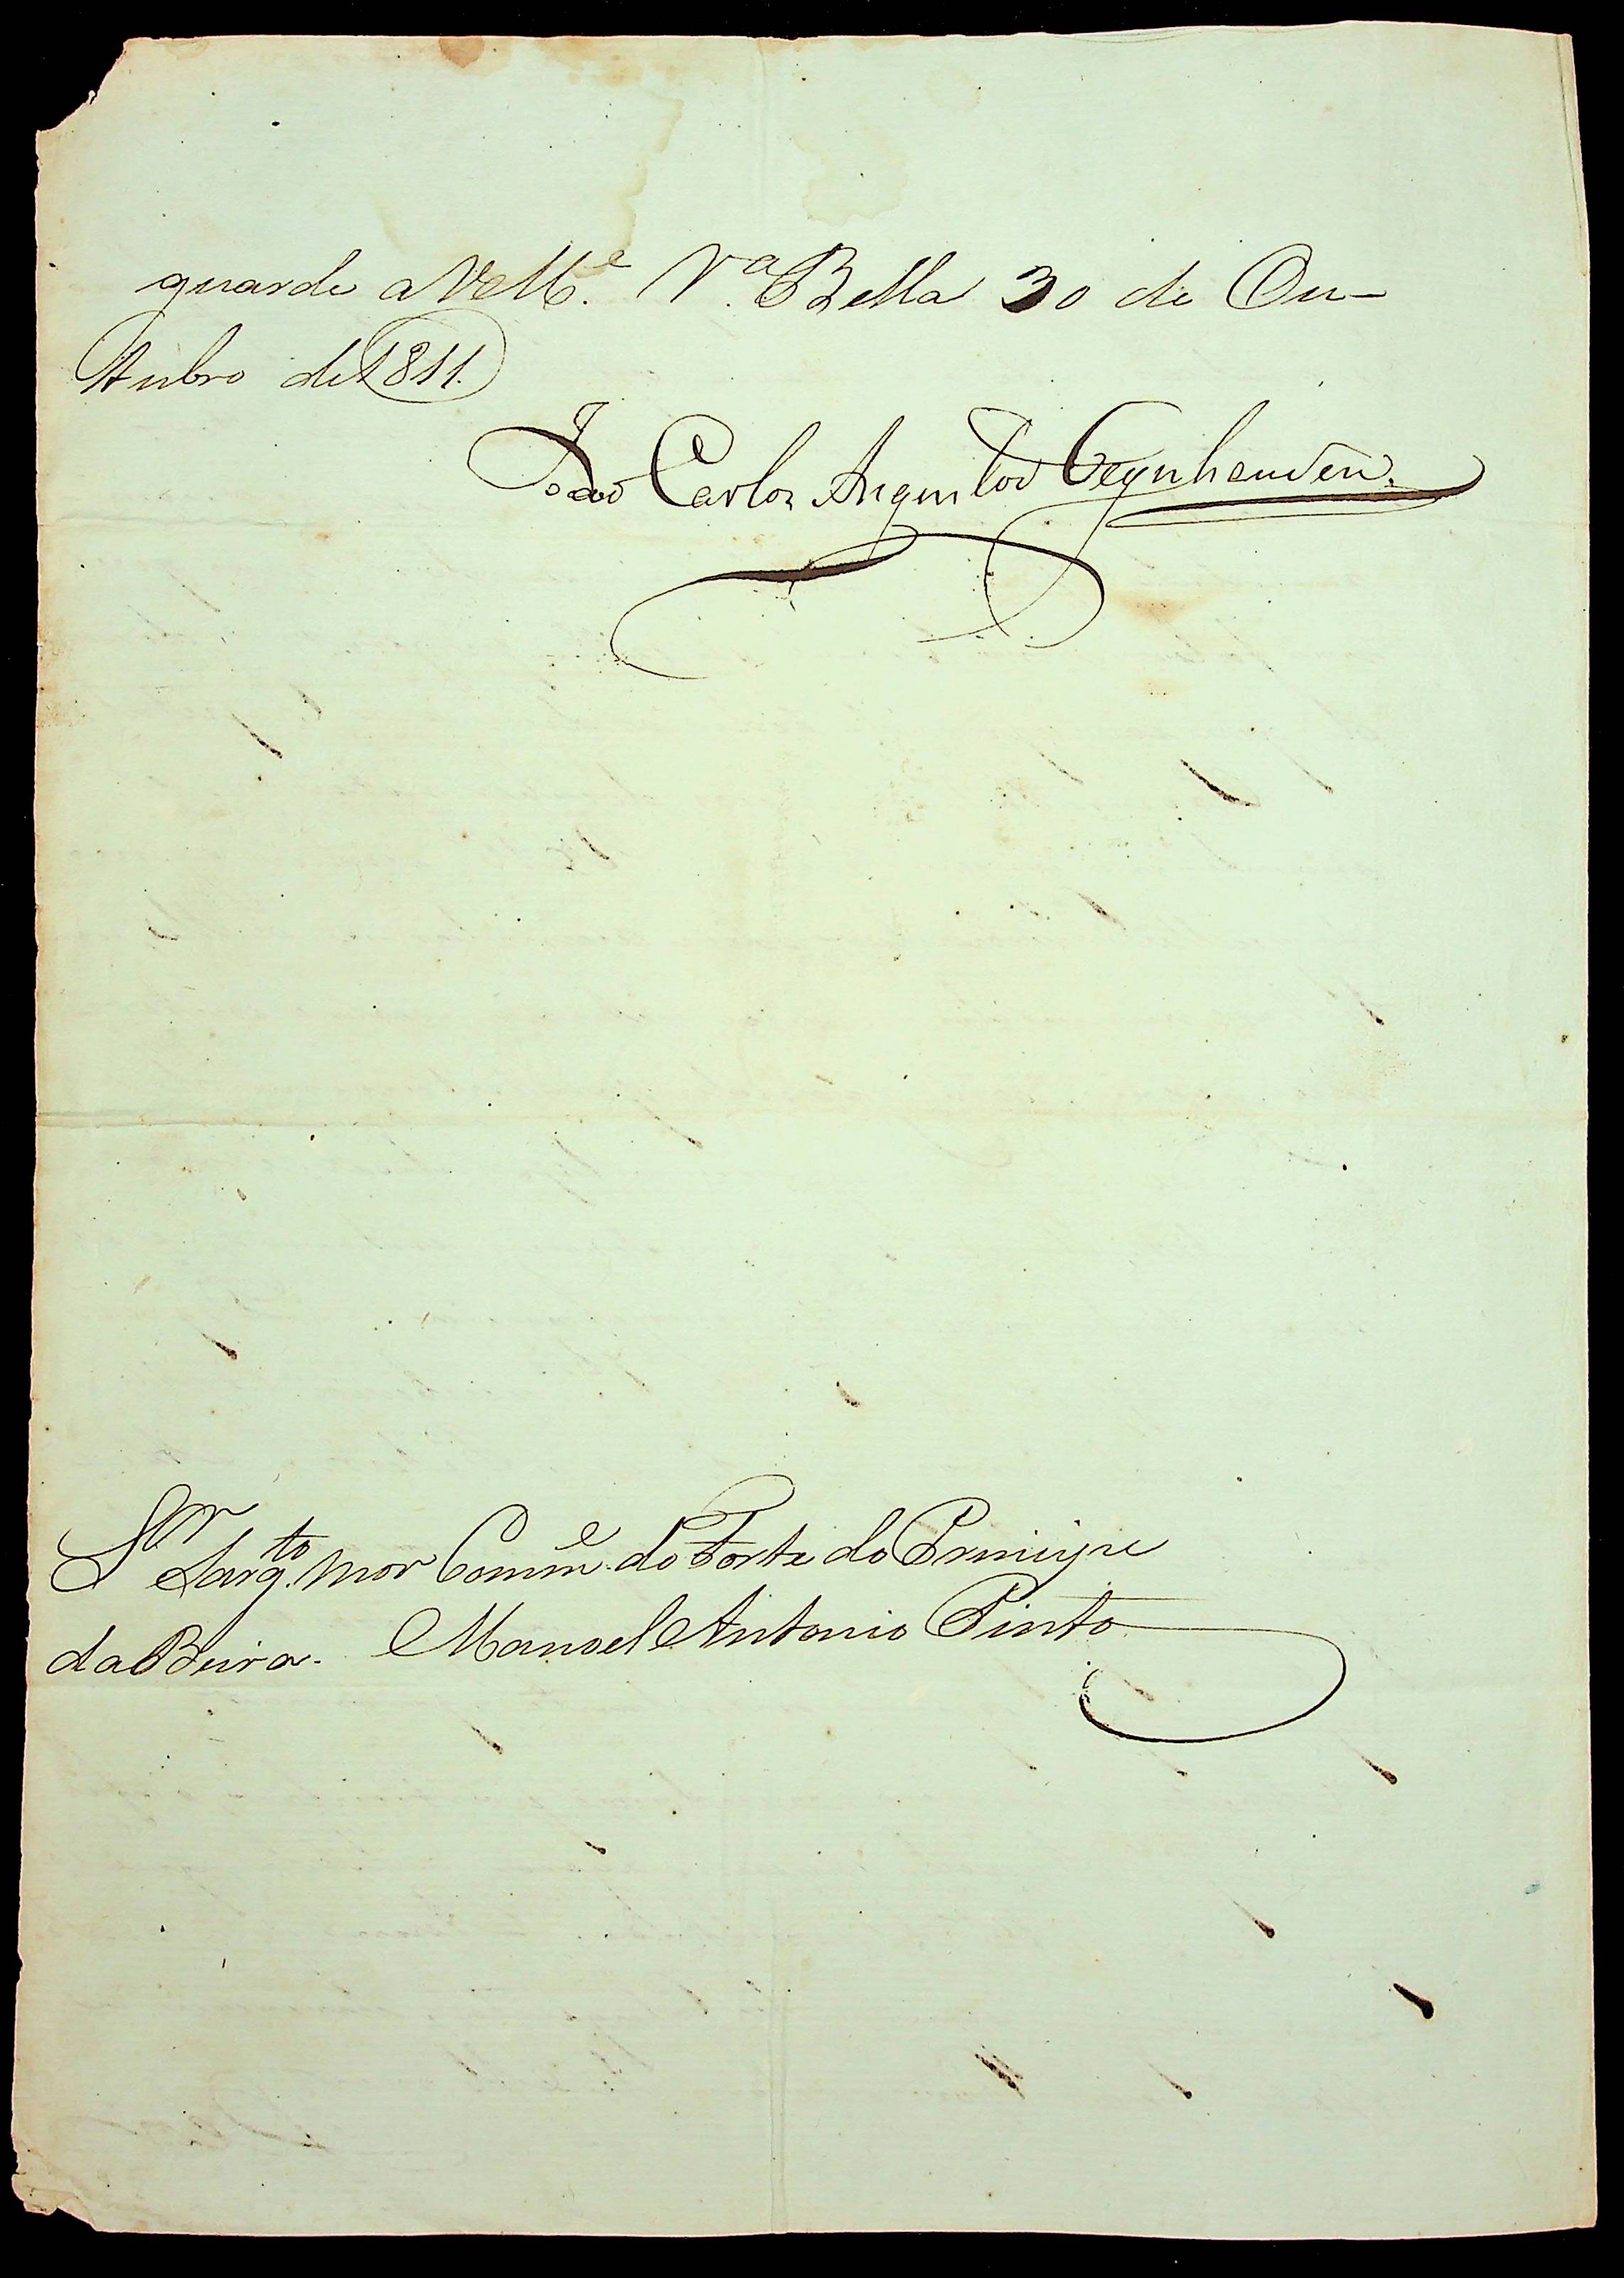 guarde a VM.ce V.a Bella 30 de Ou-
tubro de 1811.
João Carlos Augusto d'Oeynhausen.
S.or Sarg.to mor Comm.e do Forte do Principe
da Beira. Manoel Antonio Pinto